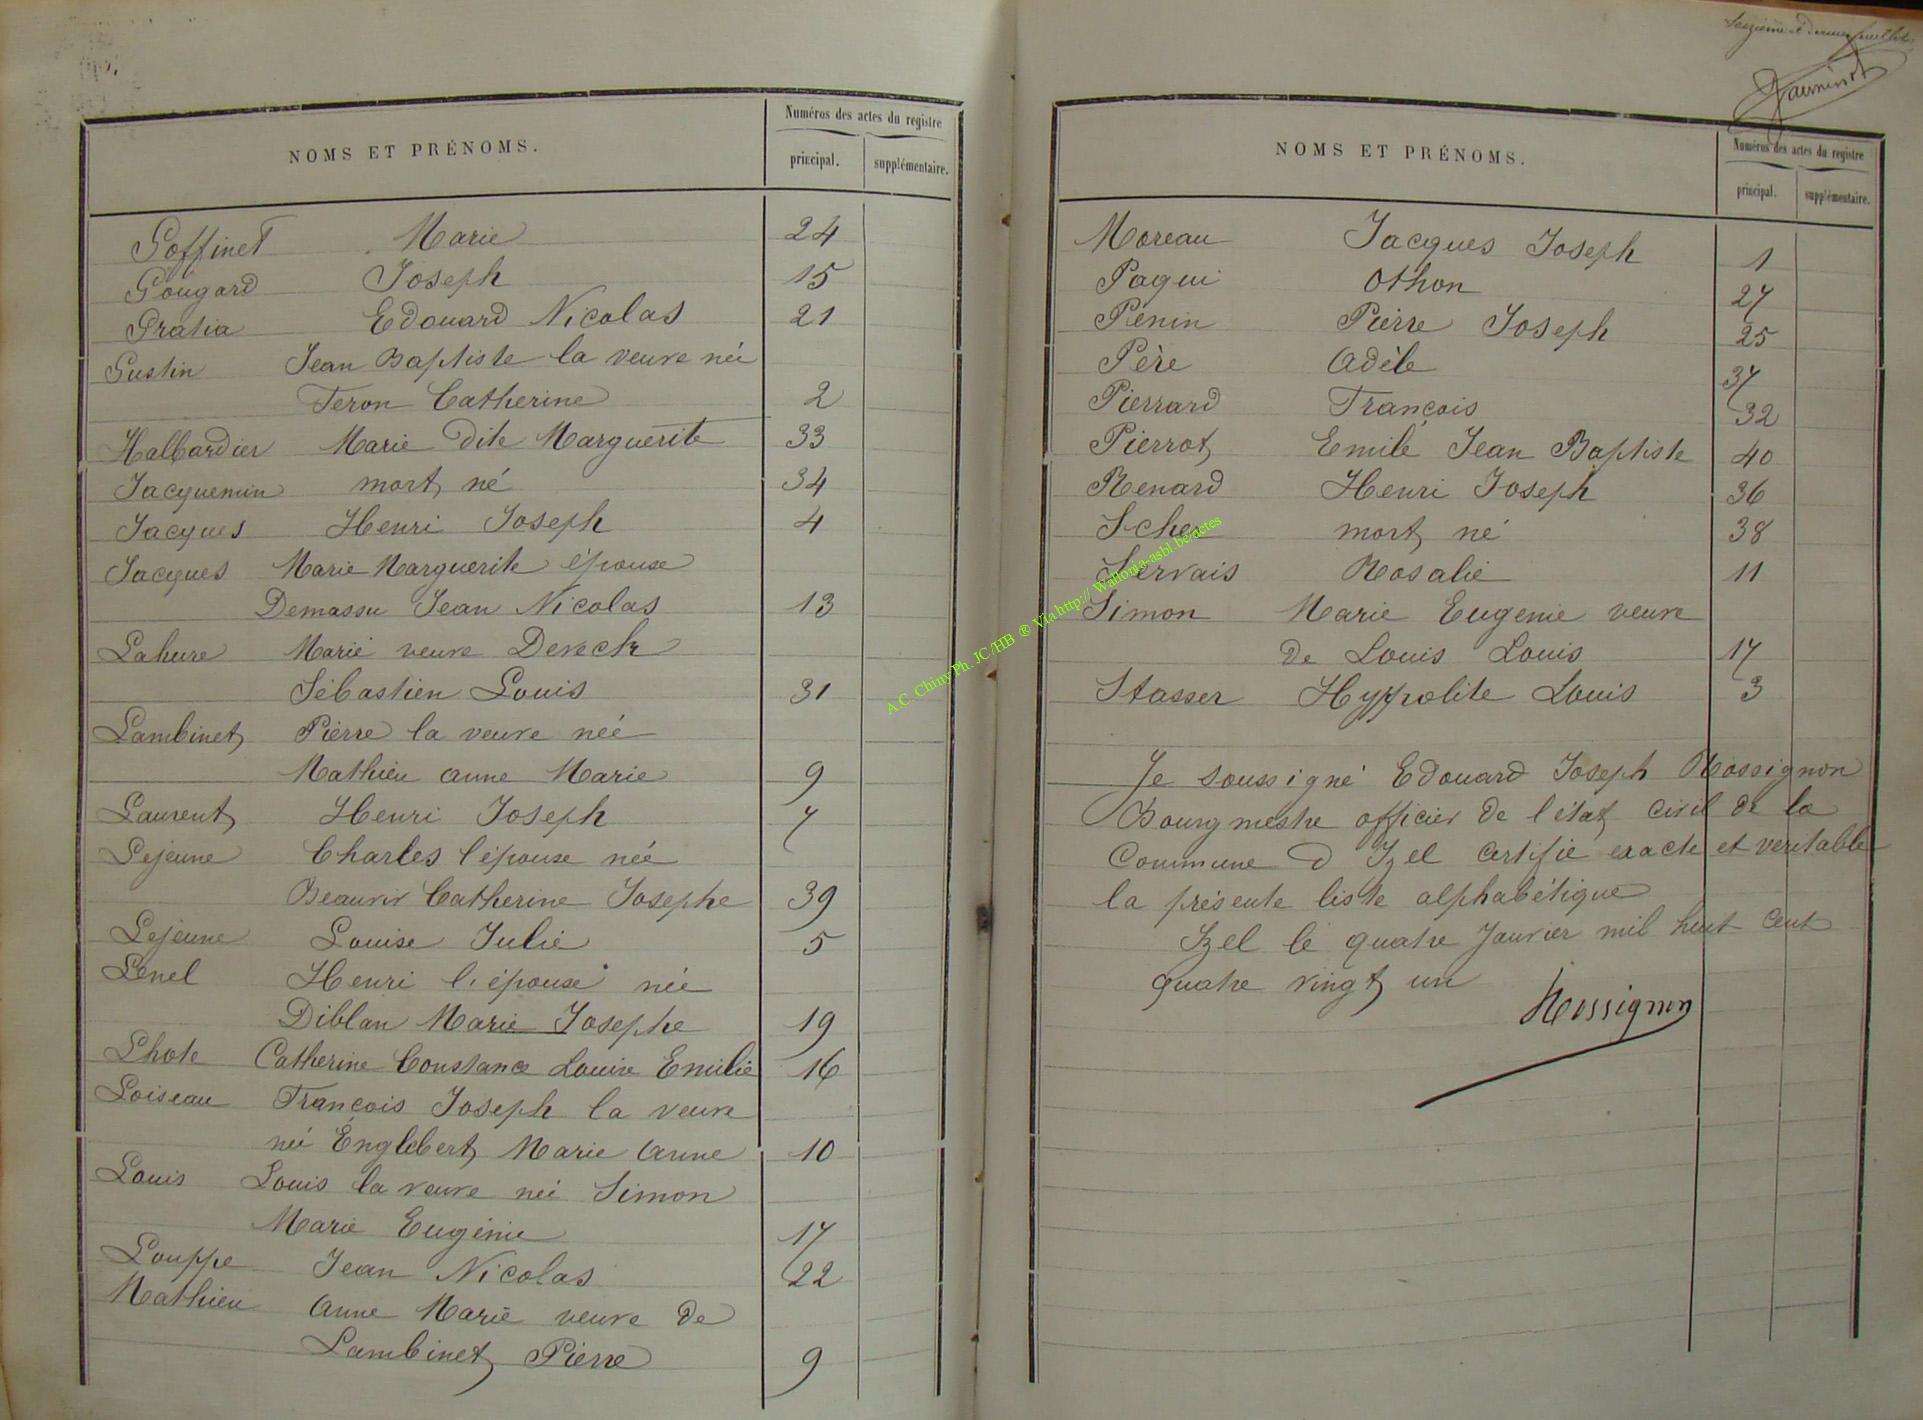 NOMS ET PRÉNOMS.
Numéros des actes du registre
principal. supplémentaire.
Goffinet Marie 24
Gougard Joseph 15
Gratia Edouard Nicolas 21
Gustin Jean Baptiste la veuve née
Feron Catherine 2
Halbardier Marie dite Marguerite 33
Jacquemin mort né 34
Jacques Henri Joseph 4
Jacques Marie Marguerite épouse
Demassu Jean Nicolas 13
Lahure Marie veuve Dereck
Sébastien Louis 31
Lambinet Pierre la veuve née
Mathieu anne Marie 9
Laurent Henri Joseph 7
Lejeune Charles l'épouse née
Beauvir Catherine Josephe 39
Lejeune Louise Julie 5
Lenel Henri l'épouse née
Diblan Marie Josephe 19
Lhote Catherine Constance Louise Emilie 16
Loiseau François Joseph la veuve
née Englebert Marie anne 10
Louis Louis la veuve née Simon
Marie Eugénie 17
Louppe Jean Nicolas 22
Mathieu anne Marie veuve de
Lambinet Pierre 9
Seizième et dernier feuillet
NOMS ET PRÉNOMS.
Numéros des actes du registre
principal. supplémentaire.
Moreau Jacques Joseph 1
Paqui Othon 27
Penin Pierre Joseph 25
Père adèle 37
Pierrard François 32
Pierrot Emile Jean Baptiste 40
Renard Henri Joseph 36
mort né 38
Servais Rosalie 11
Simon Marie Eugenie veuve
de Louis Louis 17
Stasser Hyppolite Louis 3
Je soussigné Edouard Joseph Rossignon
Bourgmestre officier de l'état civil de la
Commune d Izel certifie exacte et veritable
la présente liste alphabétique
Izel le quatre Janvier mil huit cent
quatre vingt un
Rossignon
A.C. Chiny Ph. JC/HB ® Via http:// Wallonia-asbl.be/actes